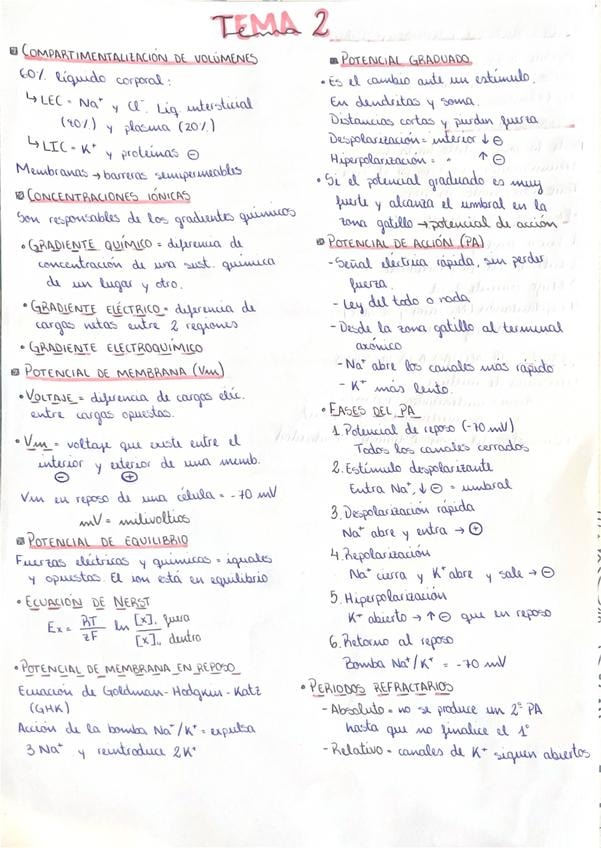 TEMA 2
COMPARTIMENTALIZACIÓN DE VOLÚMENES
60% líquido corporal:
↳ LEC = Na⁺ y Cl⁻. Líq. intersticial
(80%) y plasma (20%)
↳ LIC = K⁺ y proteínas ⊖
Membranas → barreras semipermeables
CONCENTRACIONES IÓNICAS
Son responsables de los gradientes químicos
• GRADIENTE QUÍMICO = diferencia de
concentración de una sust. química
de un lugar y otro.
• GRADIENTE ELÉCTRICO = diferencia de
cargas netas entre 2 regiones
• GRADIENTE ELECTROQUÍMICO
POTENCIAL DE MEMBRANA (Vm)
• VOLTAJE = diferencia de cargas eléc.
entre cargas opuestas.
• Vm = voltaje que existe entre el
interior y exterior de una memb.
⊖ ⊕
Vm en reposo de una célula = -70 mV
mV = milivoltios
POTENCIAL DE EQUILIBRIO
Fuerzas eléctricas y químicas = iguales
y opuestas. El ion está en equilibrio
• ECUACIÓN DE NERST
Ex = RT/zF ln [x]. fuera/[x]. dentro
• POTENCIAL DE MEMBRANA EN REPOSO
Ecuación de Goldman-Hodgkin-Katz
(GHK)
Acción de la bomba Na⁺/K⁺ = expulsa
3 Na⁺ y reintroduce 2K⁺
POTENCIAL GRADUADO
• Es el cambio ante un estímulo.
En dendritas y soma.
Distancias cortas y pierden fuerza
Despolarización = interior ↓⊖
Hiperpolarización = " ↑⊖
• Si el potencial graduado es muy
fuerte y alcanza el umbral en la
zona gatillo → potencial de acción
POTENCIAL DE ACCIÓN (PA)
- Señal eléctrica rápida, sin perder
fuerza.
- Ley del todo o nada
- Desde la zona gatillo al terminal
axónico
- Na⁺ abre los canales más rápido
- K⁺ más lento.
• FASES DEL PA
1. Potencial de reposo (-70 mV)
Todos los canales cerrados
2. Estímulo despolarizante
Entra Na⁺, ↓⊖ = umbral
3. Despolarización rápida
Na⁺ abre y entra → ⊕
4. Repolarización
Na⁺ cierra y K⁺ abre y sale → ⊖
5. Hiperpolarización
K⁺ abierto → ↑⊖ que en reposo
6. Retorno al reposo
Bomba Na⁺/K⁺ = -70 mV
• PERIODOS REFRACTARIOS
- Absoluto = no se produce un 2º PA
hasta que no finalice el 1º
- Relativo = canales de K⁺ siguen abiertos